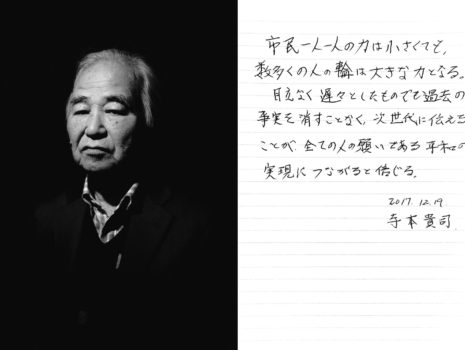 市民一人一人の力は小さくても、
数多くの人の輪は大きな力となる。
目立なく遅々としたものでも過去の
事実を消すことなく、次世代に伝える
ことが、全ての人の願いである平和の
実現につながると信じる。
2017.12.19
寺本貴司